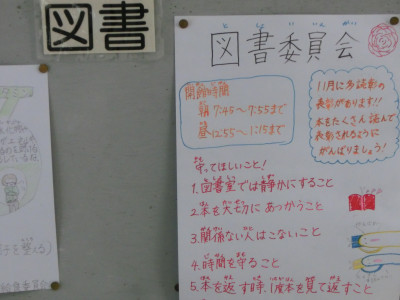 図書
図書委員会
としょいいんかい
開館時間
朝 7:45～7:55まで
昼 12:55～1:15まで
11月に多読賞の
表彰があります!!
本をたくさん読んで
表彰されるように
がんばりましょう!
守ってほしいこと!
1.図書室では静かにすること
2.本を大切に あつかうこと
3.関係ない人はこないこと
4.時間を守ること
5.本を返す時、1度本を見て返すこと